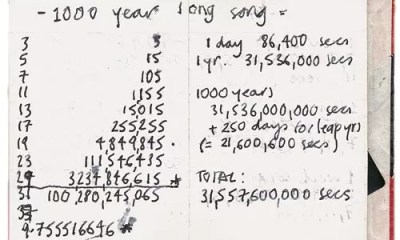 - 1000 year long song =
3 3
5 15
7 105
11 1155
13 15015
17 255255
19 4849845.
23 111546435
29 3237,846,615 *
31 100,280,245,065
37
9.755516646 *
1 day 86,400 secs
1 yr. 31,536,000 secs
1000 years
31,536,000,000 secs
+ 250 days for leap yrs
(= 21,600,600 secs)
TOTAL:
31,557,600,000 secs